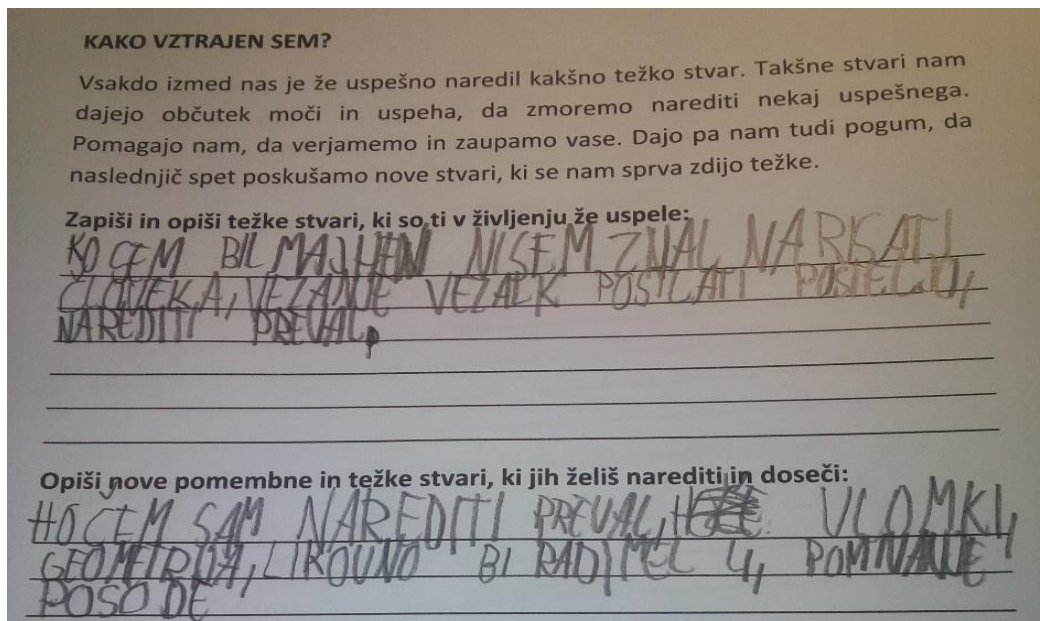 KAKO VZTRAJEN SEM?
Vsakdo izmed nas je že uspešno naredil kakšno težko stvar. Takšne stvari nam
dajejo občutek moči in uspeha, da zmoremo narediti nekaj uspešnega.
Pomagajo nam, da verjamemo in zaupamo vase. Dajo pa nam tudi pogum, da
naslednjič spet poskušamo nove stvari, ki se nam sprva zdijo težke.
Zapiši in opiši težke stvari, ki so ti v življenju že uspele:
KO CEM BIL MAJHEN NISEM ZNAL NARISATI
ČLOVEKA, VEZANJE VEZALK POSTLATI POSTELJO,
NAREDITI PREVAL,
Opiši nove pomembne in težke stvari, ki jih želiš narediti in doseči:
HOČEM SAM NAREDITI PREVAL, ULOMKI,
GEOMETRIJA, LIKOVNO BI RAD IMEL 4, POMIVANJE
POSODE